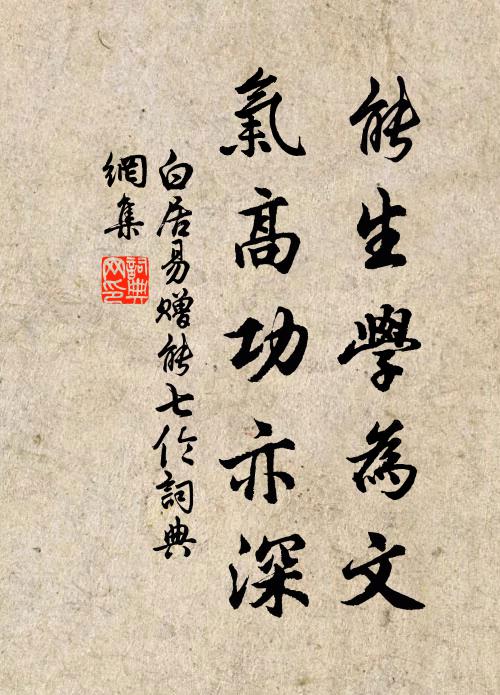 能生學為文
氣高功亦深
白居易贈能七伦詞典
網集
詞典網印